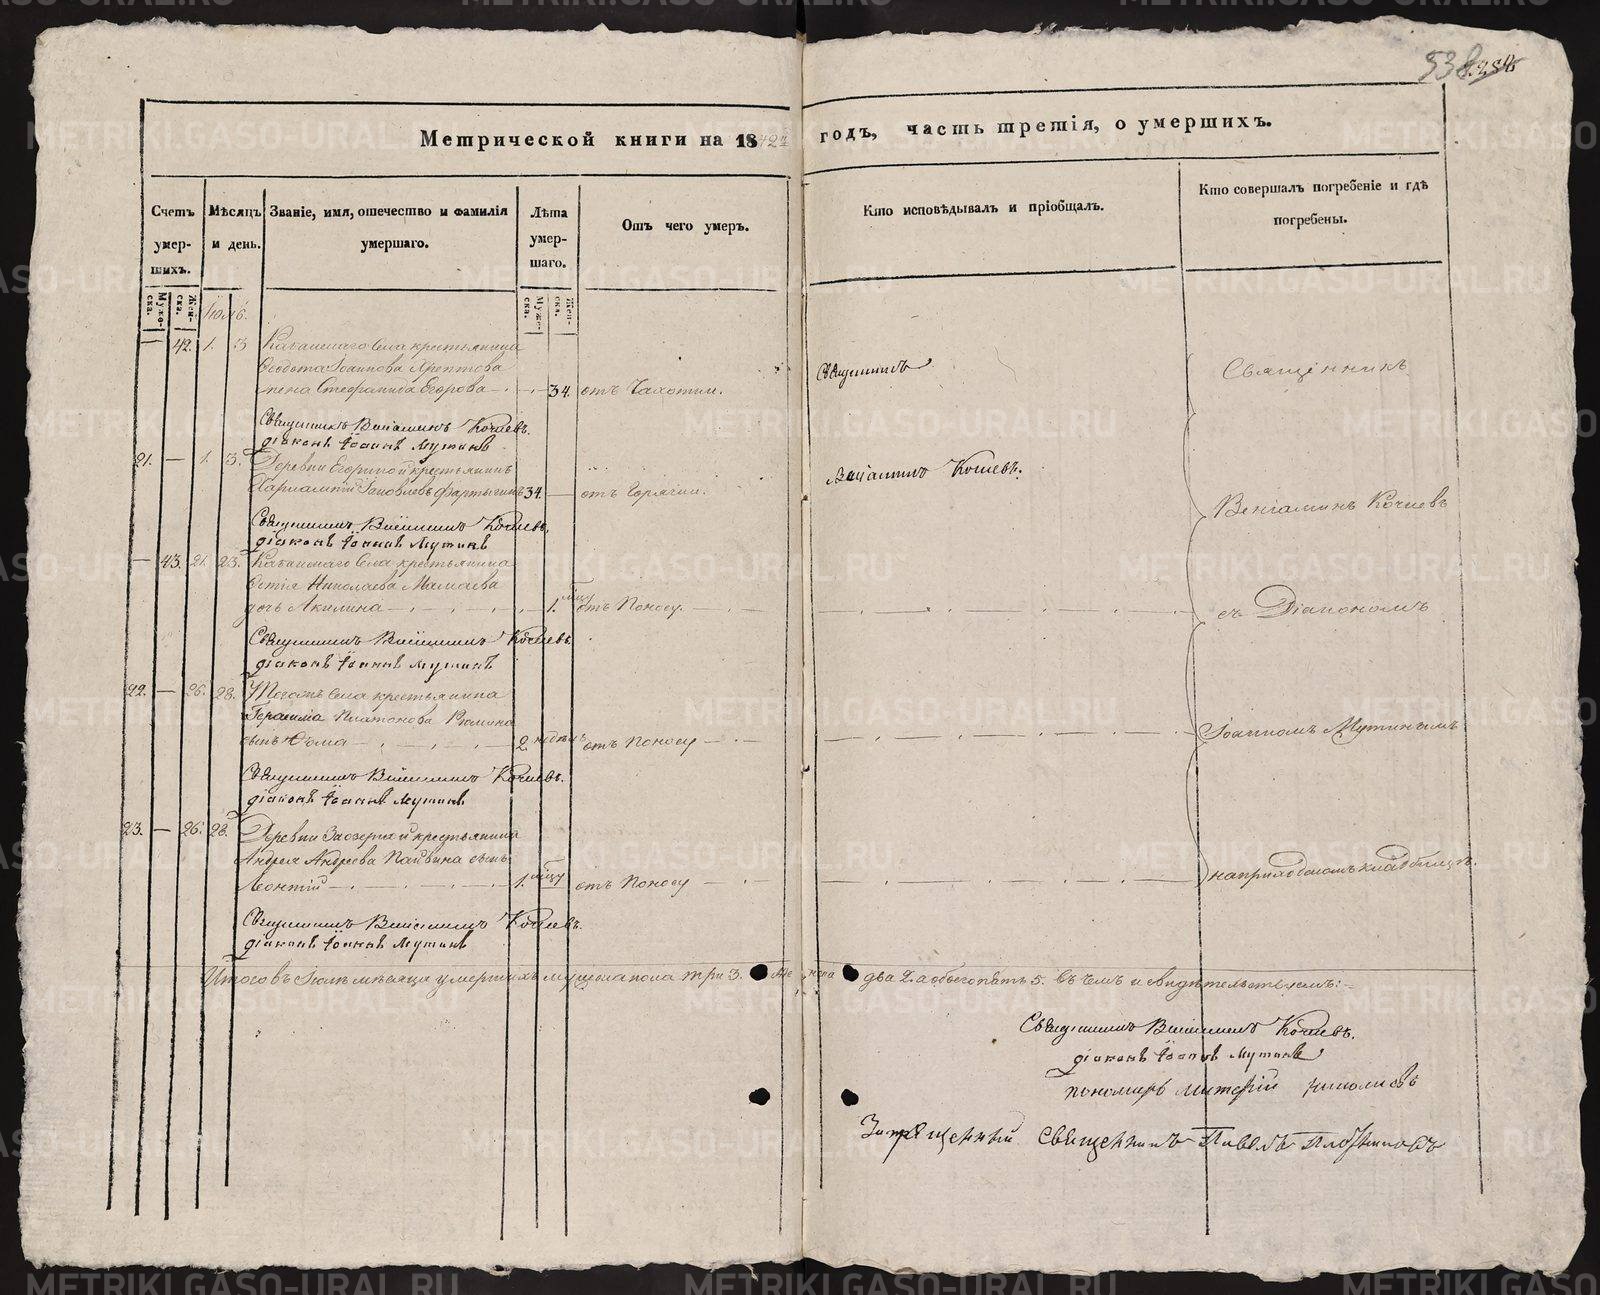 538
Метрической книги на 18
годъ, часть третія, о умершихъ.
Счетъ умер-шихъ.
Мѣсяцъ и день.
Званіе, имя, отечество и фамилія умершаго.
Лѣта умер-шаго.
Отъ чего умеръ.
Кто исповѣдывалъ и пріобщалъ.
Кто совершалъ погребеніе и гдѣ погребены.
Муже-ска.
Жен-ска.
Муже-ска.
Жен-ска.
Іюль.
42. 1. 3 села крестьянина
Ѳедота Іоаннова
жена Стефанида Егорова 34. отъ Чахотки.
Священникъ
Священникъ
Священникъ Веніаминъ Кочневъ.
діаконъ Іоаннъ Мутинъ
21. 1. 3. Деревни крестьянинъ
Харлампій Іаковлевъ 34. отъ Горячки.
Веніаминъ Кочневъ.
Веніаминъ Кочневъ
Священникъ Веніаминъ Кочневъ,
діаконъ Іоаннъ Мутинъ
43. 21. 23. села крестьянина
Николаева Мамаева
дочь Акилина 1. мцу отъ Поносу.
съ Діакономъ
Священникъ Веніаминъ Кочневъ.
діаконъ Іоаннъ Мутинъ
22. 26. 28. Тогожъ села крестьянина
Герасима Платонова
сынъ 2. недѣль отъ Поносу
Іоанномъ Мутинымъ
Священникъ Веніаминъ Кочневъ.
діаконъ Іоаннъ Мутинъ
23. 26. 28. Деревни крестьянина
Андрея Андреева сынъ
Леонтій 1. мцу отъ Поносу
на приходскомъ кладбищѣ.
Священникъ Веніаминъ Кочневъ.
діаконъ Іоаннъ Мутинъ
Итого въ Іюлѣ мѣсяцѣ умершихъ мужеска пола три 3. женска два 2. а обоего пять 5. въ чемъ и свидѣтельствуемъ:
Священникъ Веніаминъ Кочневъ.
діаконъ Іоаннъ Мутинъ
пономарь
Священникъ Павелъ
METRIKI.GASO-URAL.RU